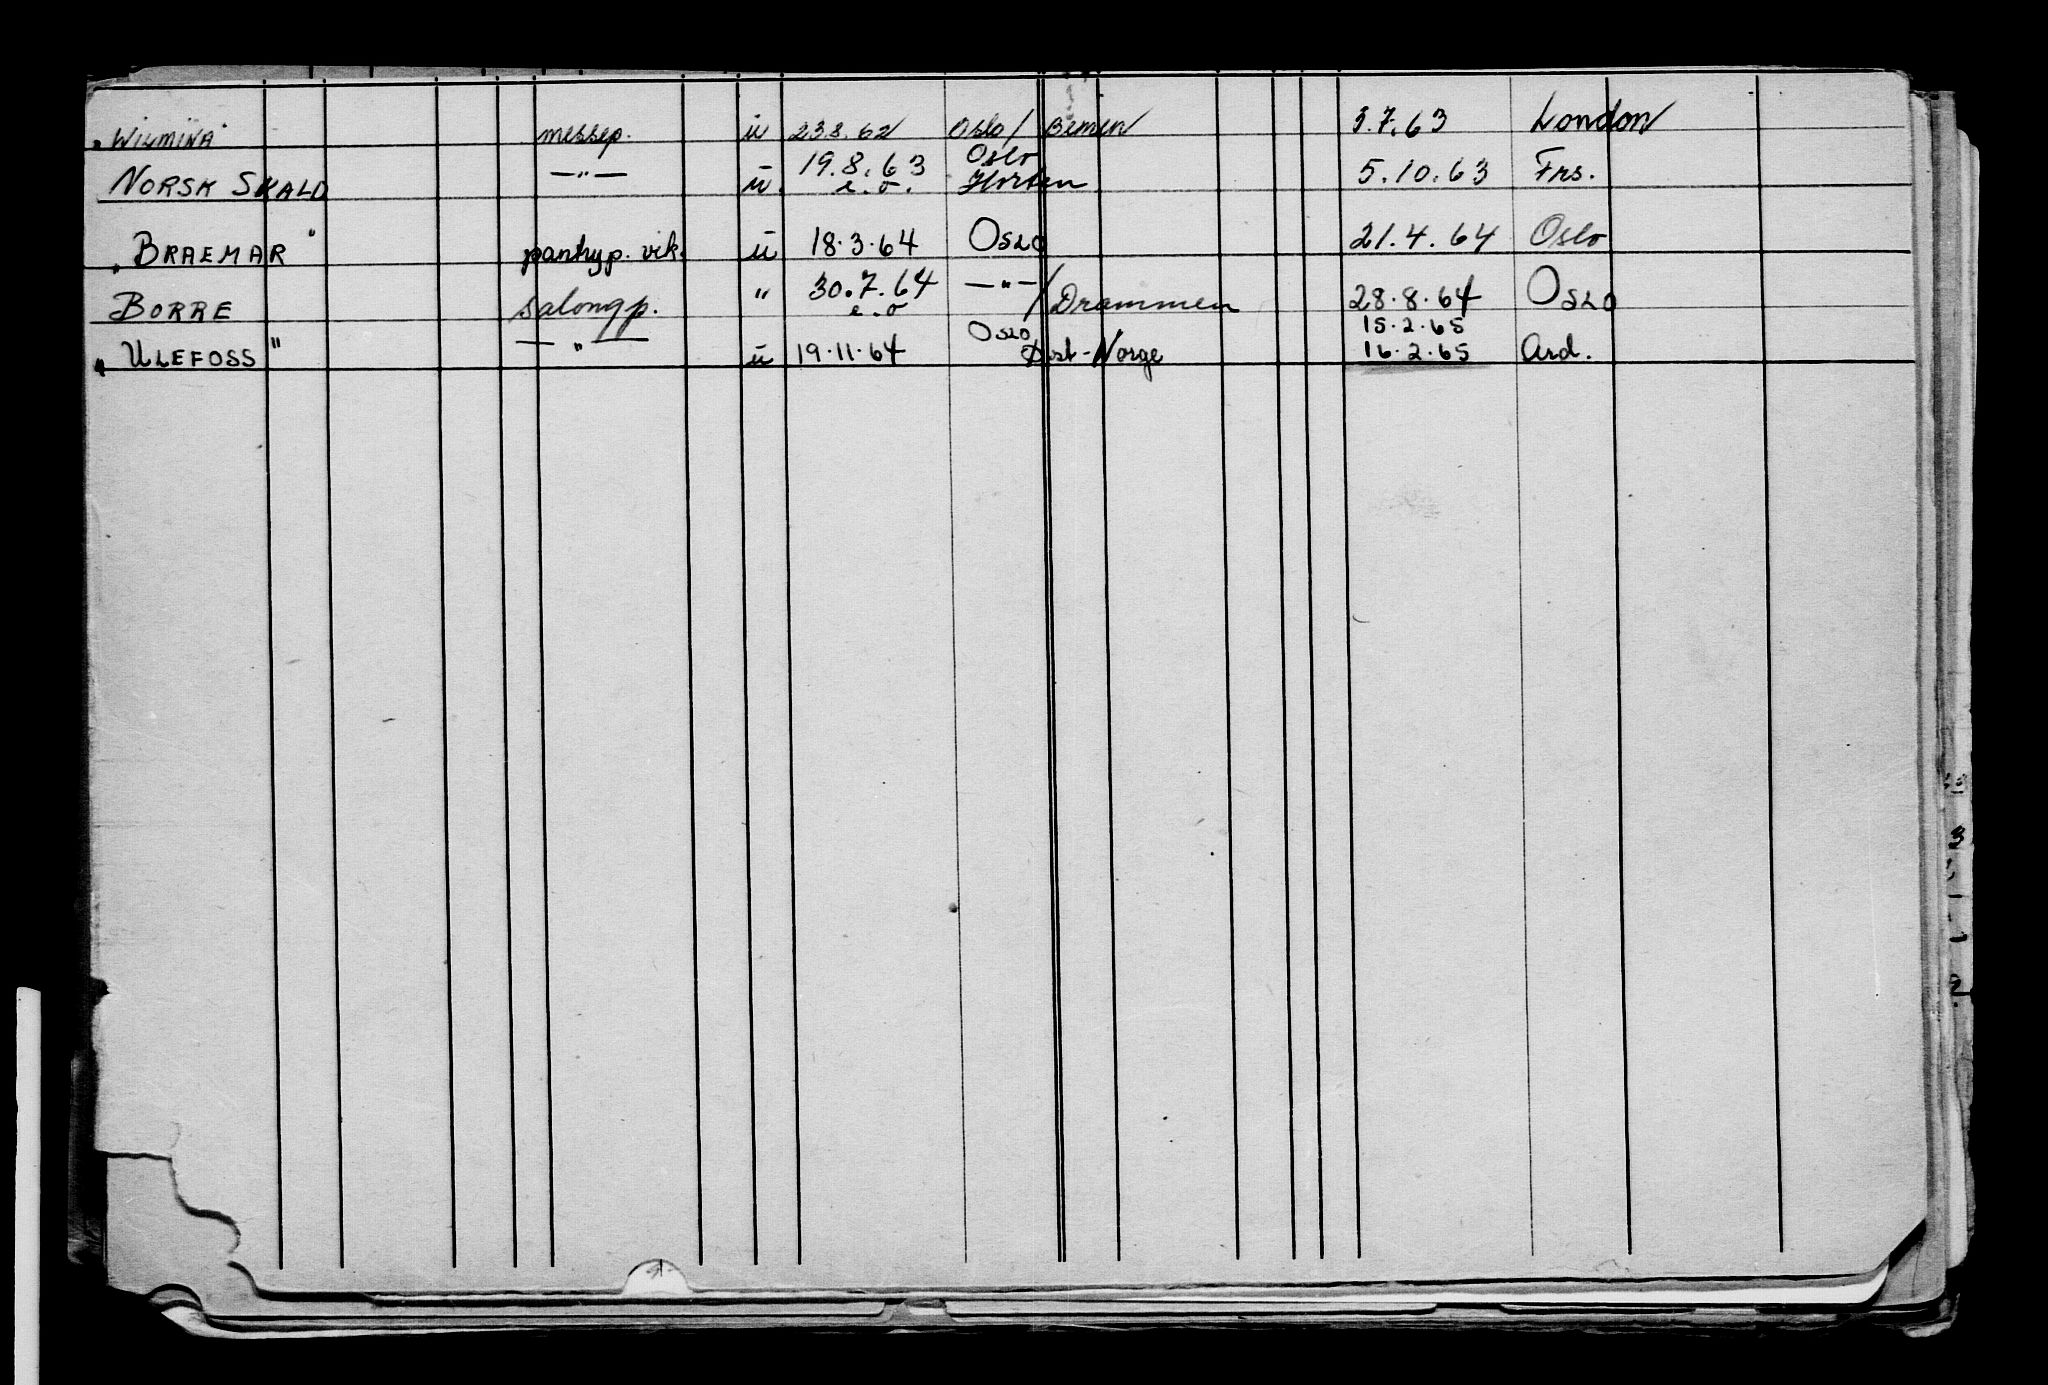 "WILMINA" messep. ü 23.8.62 Oslo / Bemen 3.7.63 London
NORSK SKALD —"— ü. 19.8.63 e.o. Oslo Horten 5.10.63 Frs.
"BRAEMAR" pantryp. vik. ü 18.3.64 OSLO 21.4.64 Oslo
BORRE salongp. " 30.7.64 e.o —"— / Drammen 28.8.64 OSLO
"ULEFOSS" —"— ü 19.11.64 OSLO Øst-Norge 15.2.65 16.2.65 Ard.